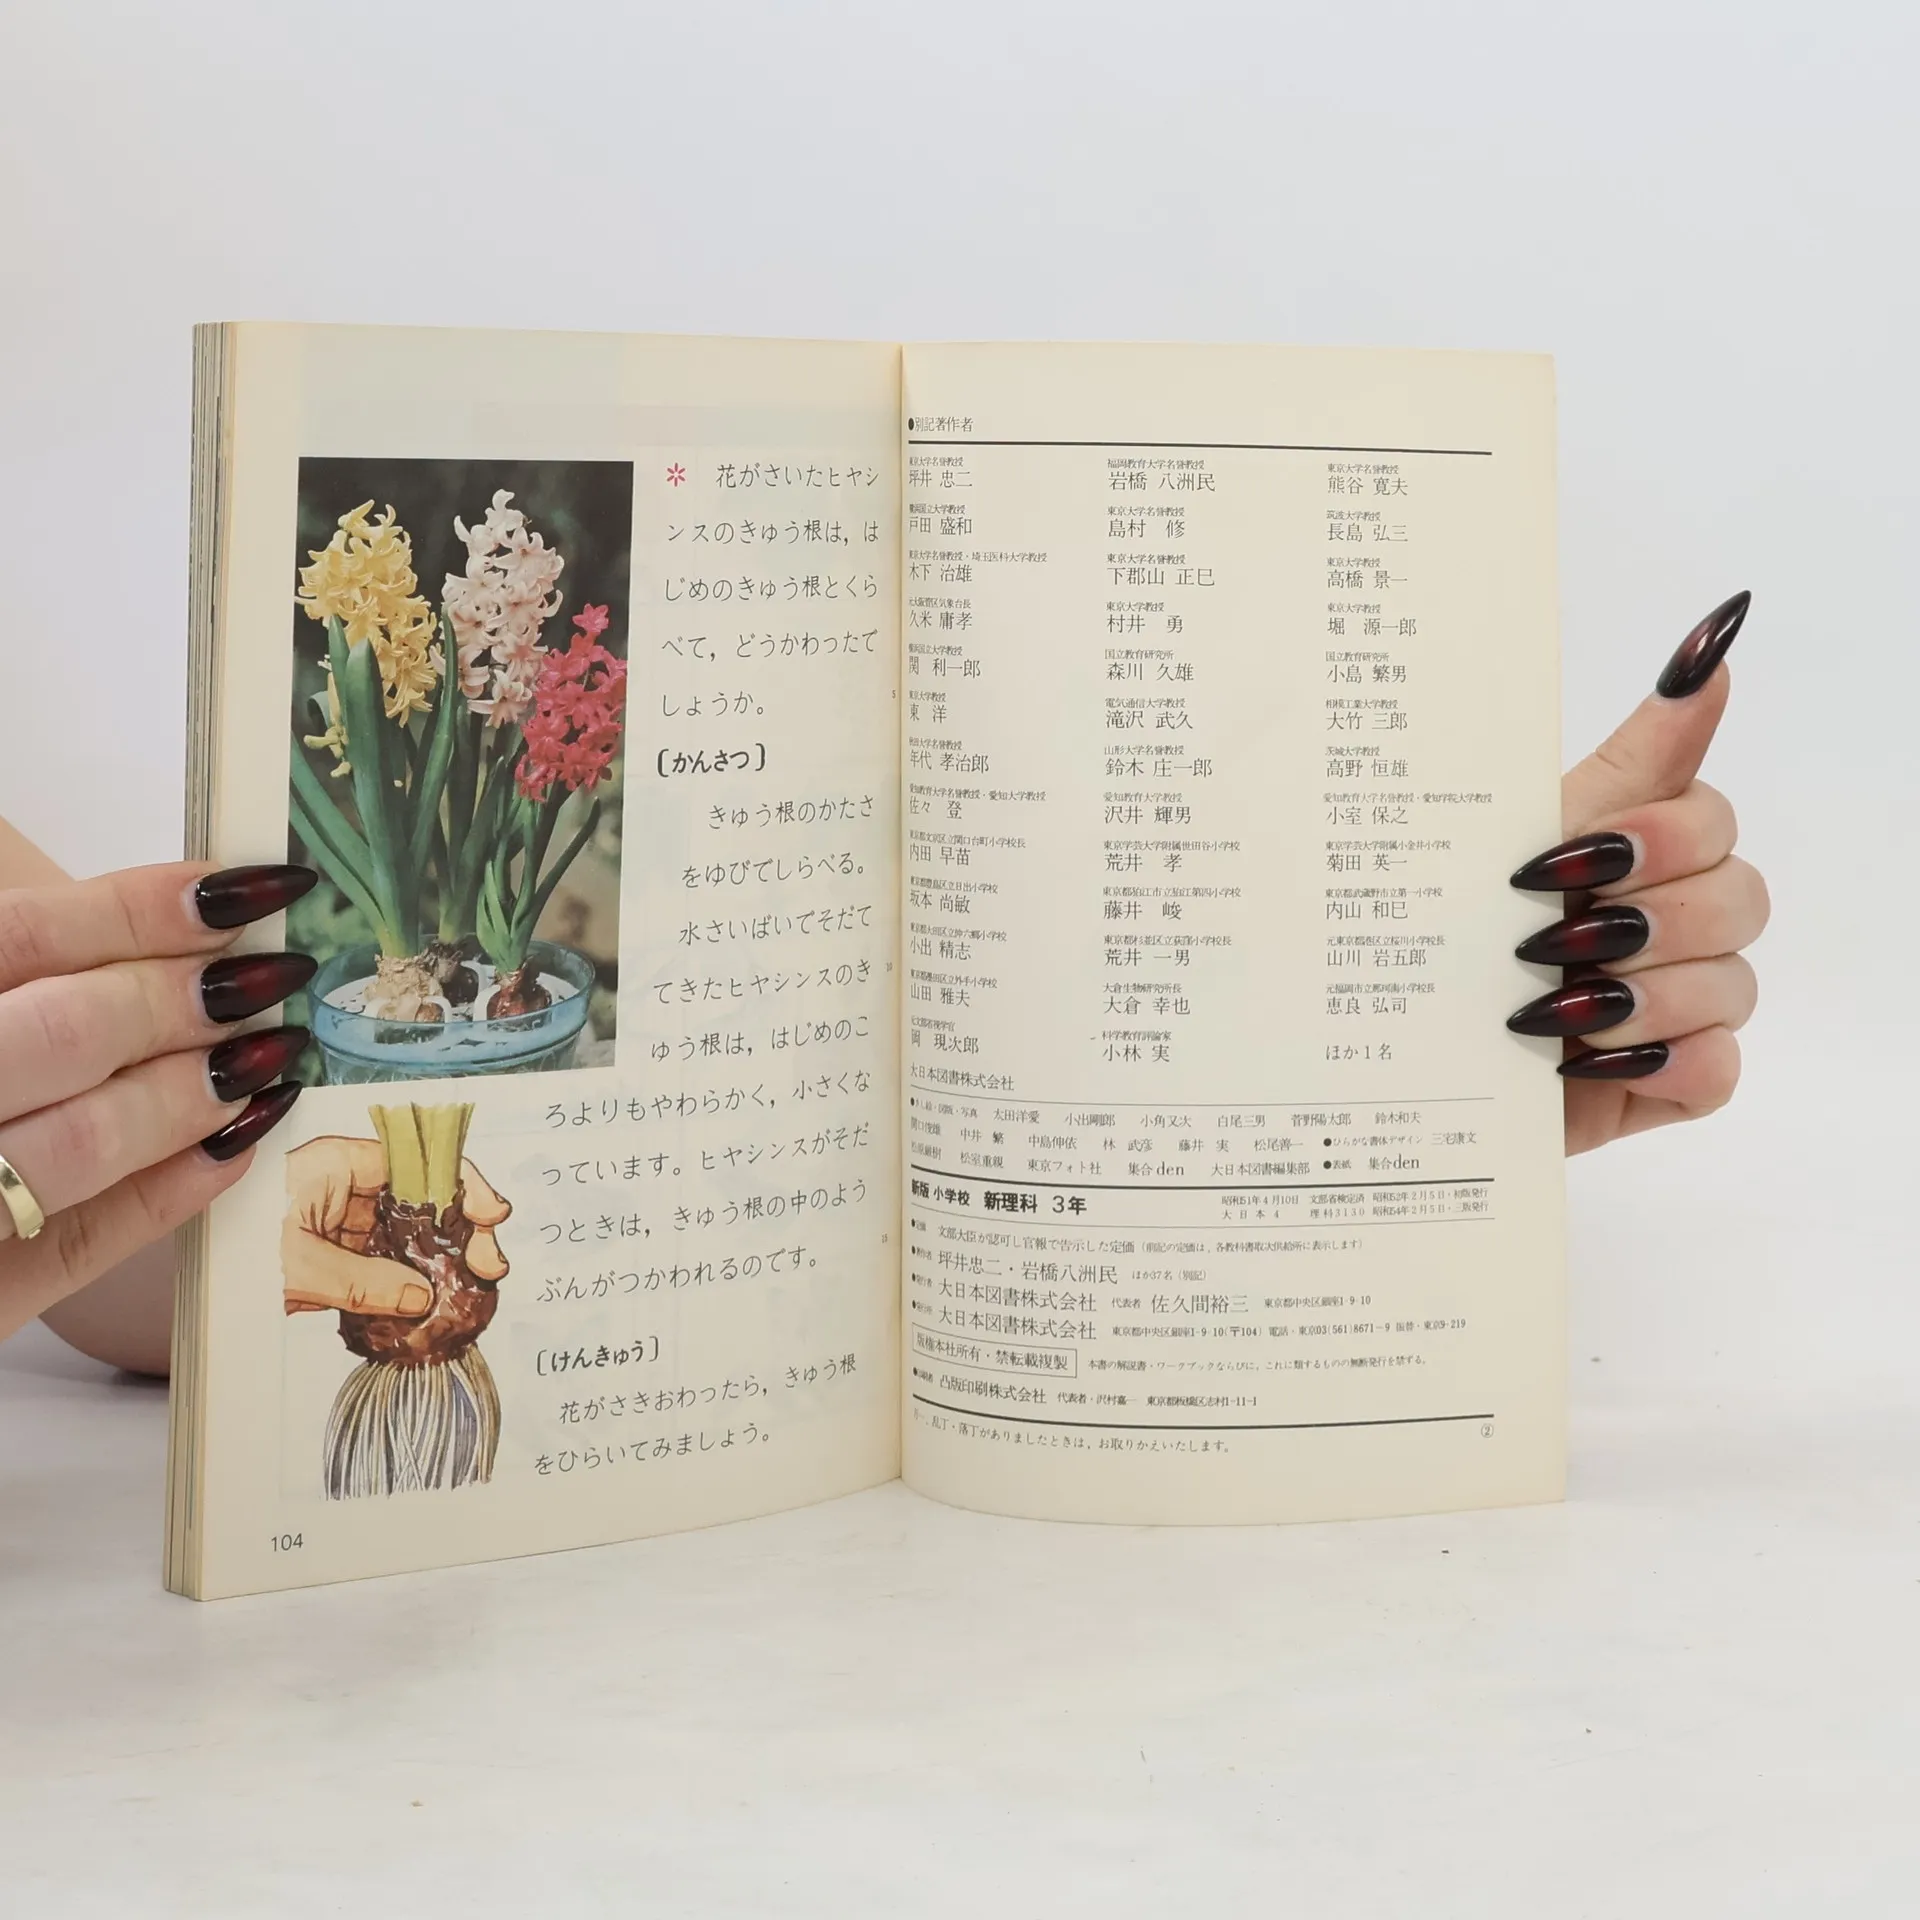 ＊ 花がさいたヒヤシ
ンスのきゅう根は，は
じめのきゅう根とくら
べて，どうかわったで
しょうか。
5
〔かんさつ〕
きゅう根のかたさ
をゆびでしらべる。
水さいばいでそだて
てきたヒヤシンスのき
10
ゅう根は，はじめのこ
ろよりもやわらかく，小さくな
っています。ヒヤシンスがそだ
つときは，きゅう根の中のよう
15
ぶんがつかわれるのです。
〔けんきゅう〕
花がさきおわったら，きゅう根
をひらいてみましょう。
104
●別記著作者
東京大学名誉教授 福岡教育大学名誉教授 東京大学名誉教授
坪井 忠二 岩橋 八洲民 熊谷 寛夫
横浜国立大学教授 東京大学名誉教授 筑波大学教授
戸田 盛和 島村 修 長島 弘三
東京大学名誉教授・埼玉医科大学教授 東京大学名誉教授 東京大学教授
木下 治雄 下郡山 正巳 高橋 景一
元大阪管区気象台長 東京大学教授 東京大学教授
久米 庸孝 村井 勇 堀 源一郎
横浜国立大学教授 国立教育研究所 国立教育研究所
関 利一郎 森川 久雄 小島 繁男
東京大学教授 電気通信大学教授 相模工業大学教授
東 洋 滝沢 武久 大竹 三郎
秋田大学名誉教授 山形大学名誉教授 茨城大学教授
年代 孝治郎 鈴木 庄一郎 高野 恒雄
愛知教育大学名誉教授・愛知大学教授 愛知教育大学教授 愛知教育大学名誉教授・愛知学院大学教授
佐々 登 沢井 輝男 小室 保之
東京都文京区立関口台町小学校長 東京学芸大学附属世田谷小学校 東京学芸大学附属小金井小学校
内田 早苗 荒井 孝 菊田 英一
東京都豊島区立日出小学校 東京都狛江市立狛江第四小学校 東京都武蔵野市立第一小学校
坂本 尚敏 藤井 峻 内山 和巳
東京都大田区立仲六郷小学校 東京都杉並区立荻窪小学校長 元東京都港区立桜川小学校長
小出 精志 荒井 一男 山川 岩五郎
東京都墨田区立外手小学校 大倉生物研究所長 元福岡市立那珂南小学校長
山田 雅夫 大倉 幸也 恵良 弘司
元文部省視学官 科学教育評論家
岡 現次郎 小林 実 ほか1名
大日本図書株式会社
●さし絵・図版・写真 太田洋愛 小出剛郎 小角又次 白尾三男 菅野陽太郎 鈴木和夫
関口俊雄 中井 繁 中島伸依 林 武彦 藤井 実 松尾善一 ●ひらがな書体デザイン 三宅康文
松原巌樹 松室重親 東京フォト社 集合den 大日本図書編集部 ●表紙 集合den
新版 小学校 新理科 3年
昭和51年4月10日 文部省検定済 昭和52年2月5日・初版発行
大日本4 理科3130 昭和54年2月5日・三版発行
●定価 文部大臣が認可し官報で告示した定価（前記の定価は，各教科書取次供給所に表示します）
●著作者 坪井忠二・岩橋八洲民 ほか37名（別記）
●発行者 大日本図書株式会社 代表者 佐久間裕三 東京都中央区銀座1-9-10
●発行所 大日本図書株式会社 東京都中央区銀座1-9-10（〒104）電話・東京03(561)8671-9 振替・東京9-219
版権本社所有・禁転載複製 本書の解説書・ワークブックならびに，これに類するものの無断発行を禁ずる。
●印刷者 凸版印刷株式会社 代表者・沢村嘉一 東京都板橋区志村1-11-1
万一，乱丁・落丁がありましたときは，お取りかえいたします。
②